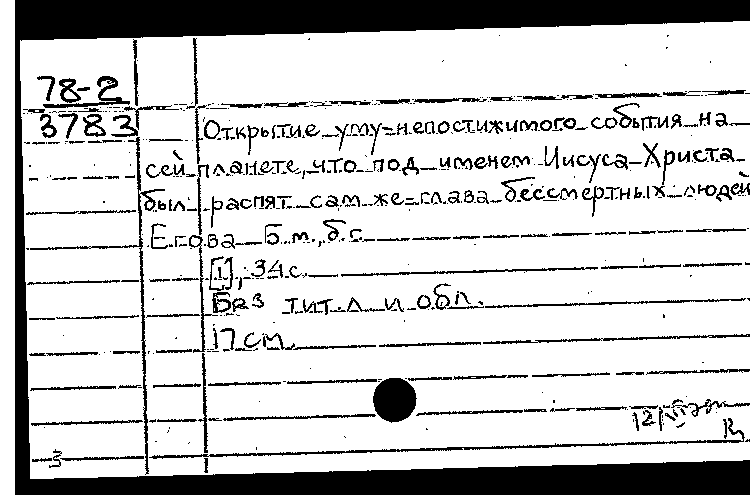 78-2
3783
Открытие уму=непостижимого события на
сей планете, что под именем Иисуса Христа
был распят сам же=глава бессмертных людей
Егова Б.м., б.г.
[1], 34 с.
Без тит. л и обл.
17 см.
12/VI